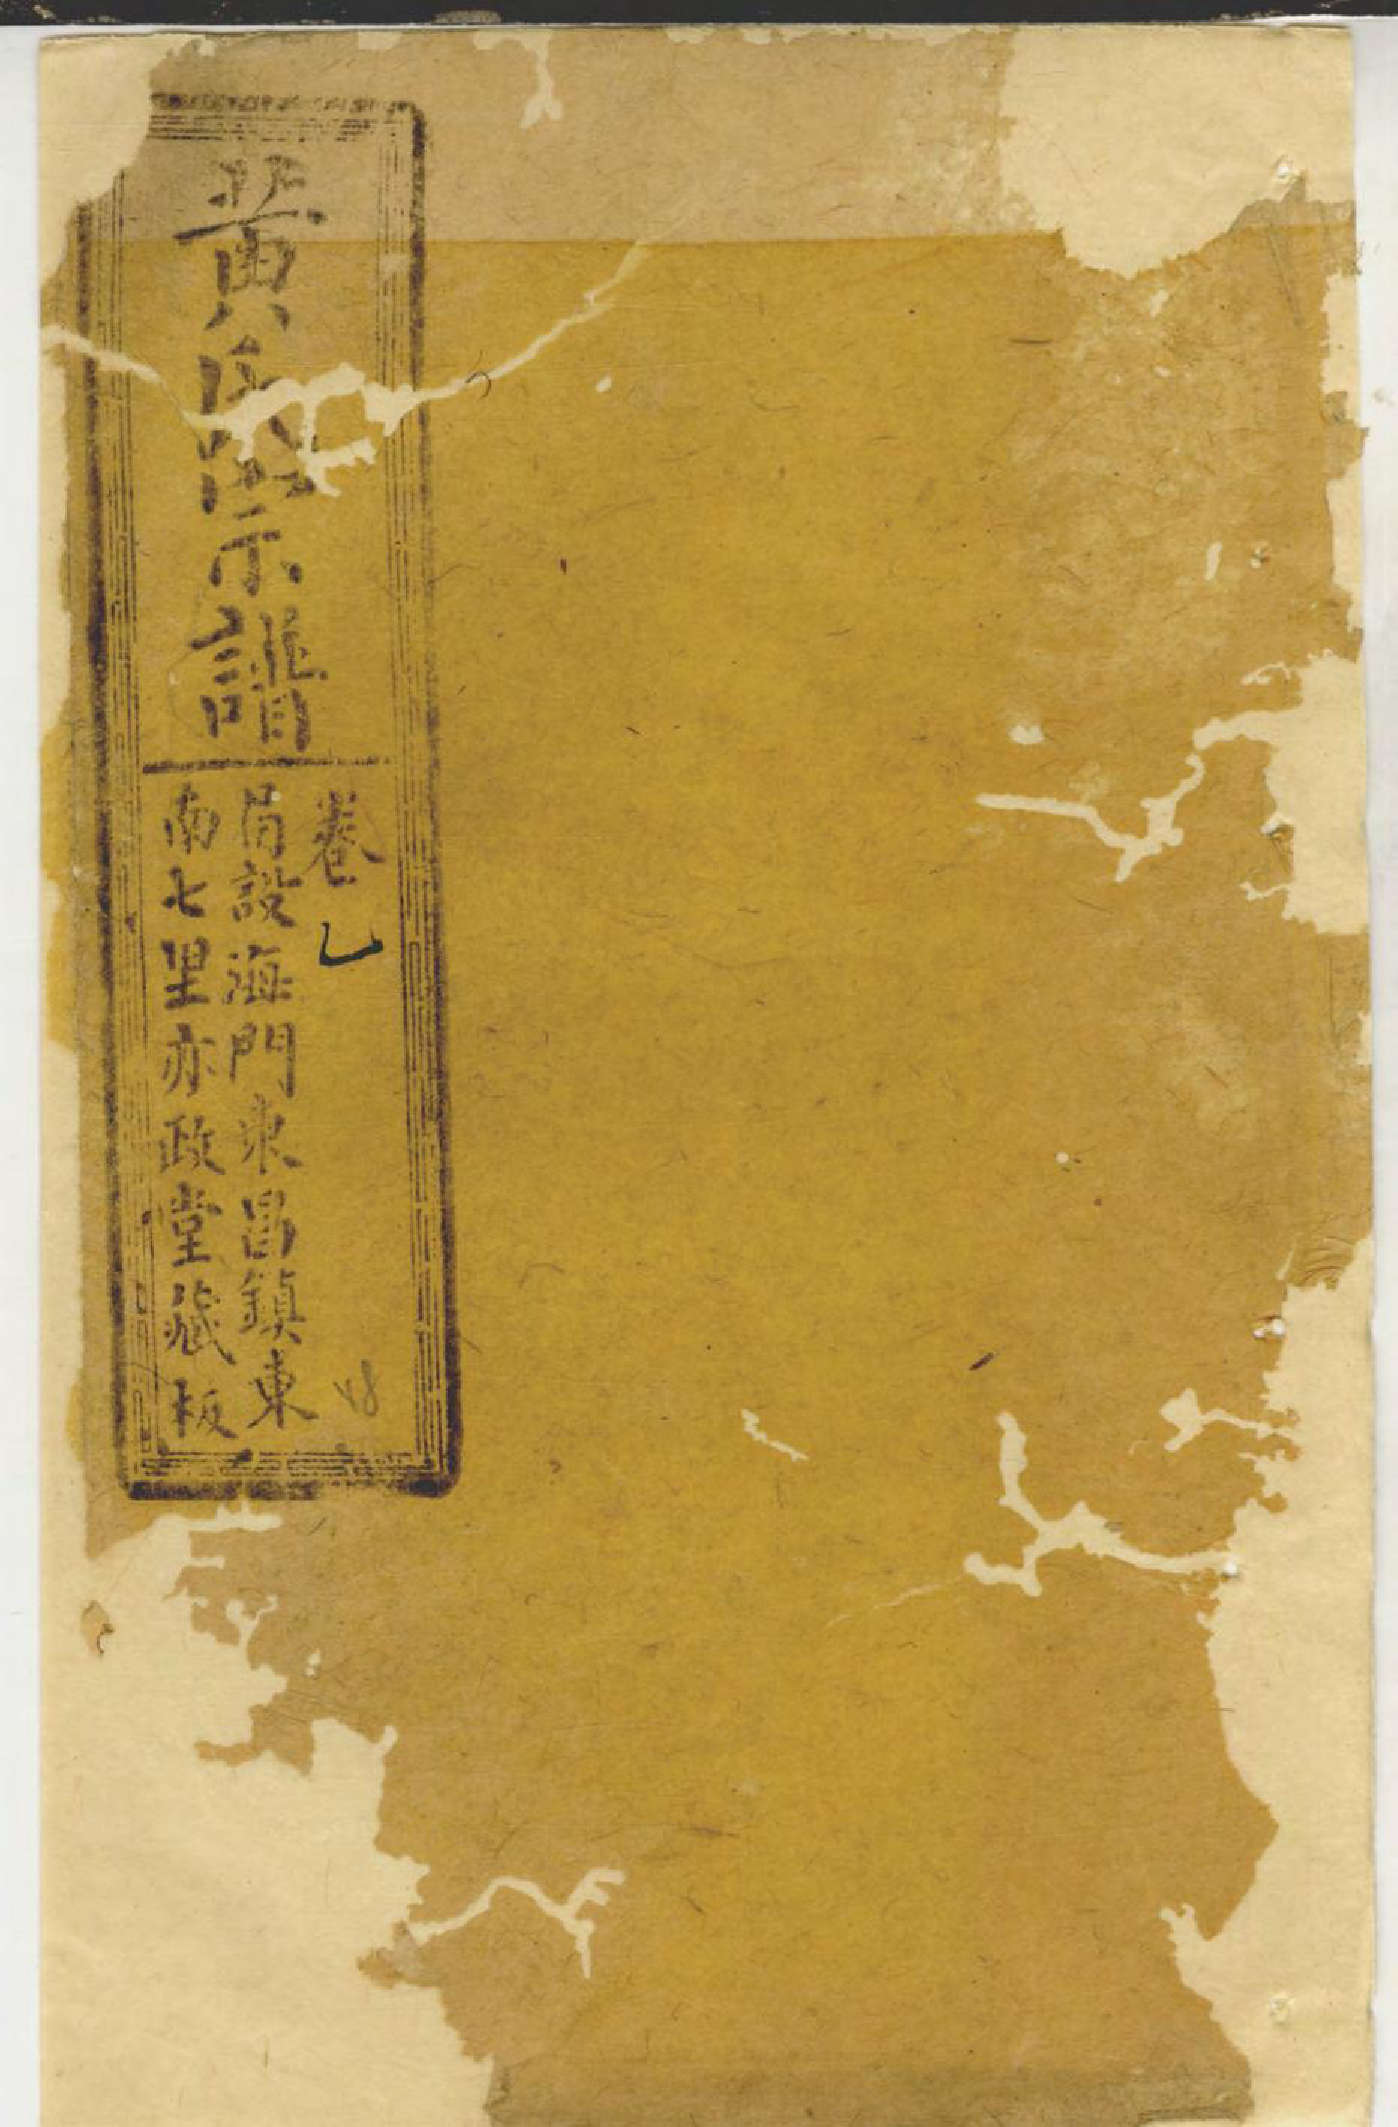 黄氏宗譜
卷乚
局設海門東昌鎮東
南七里亦政堂藏板